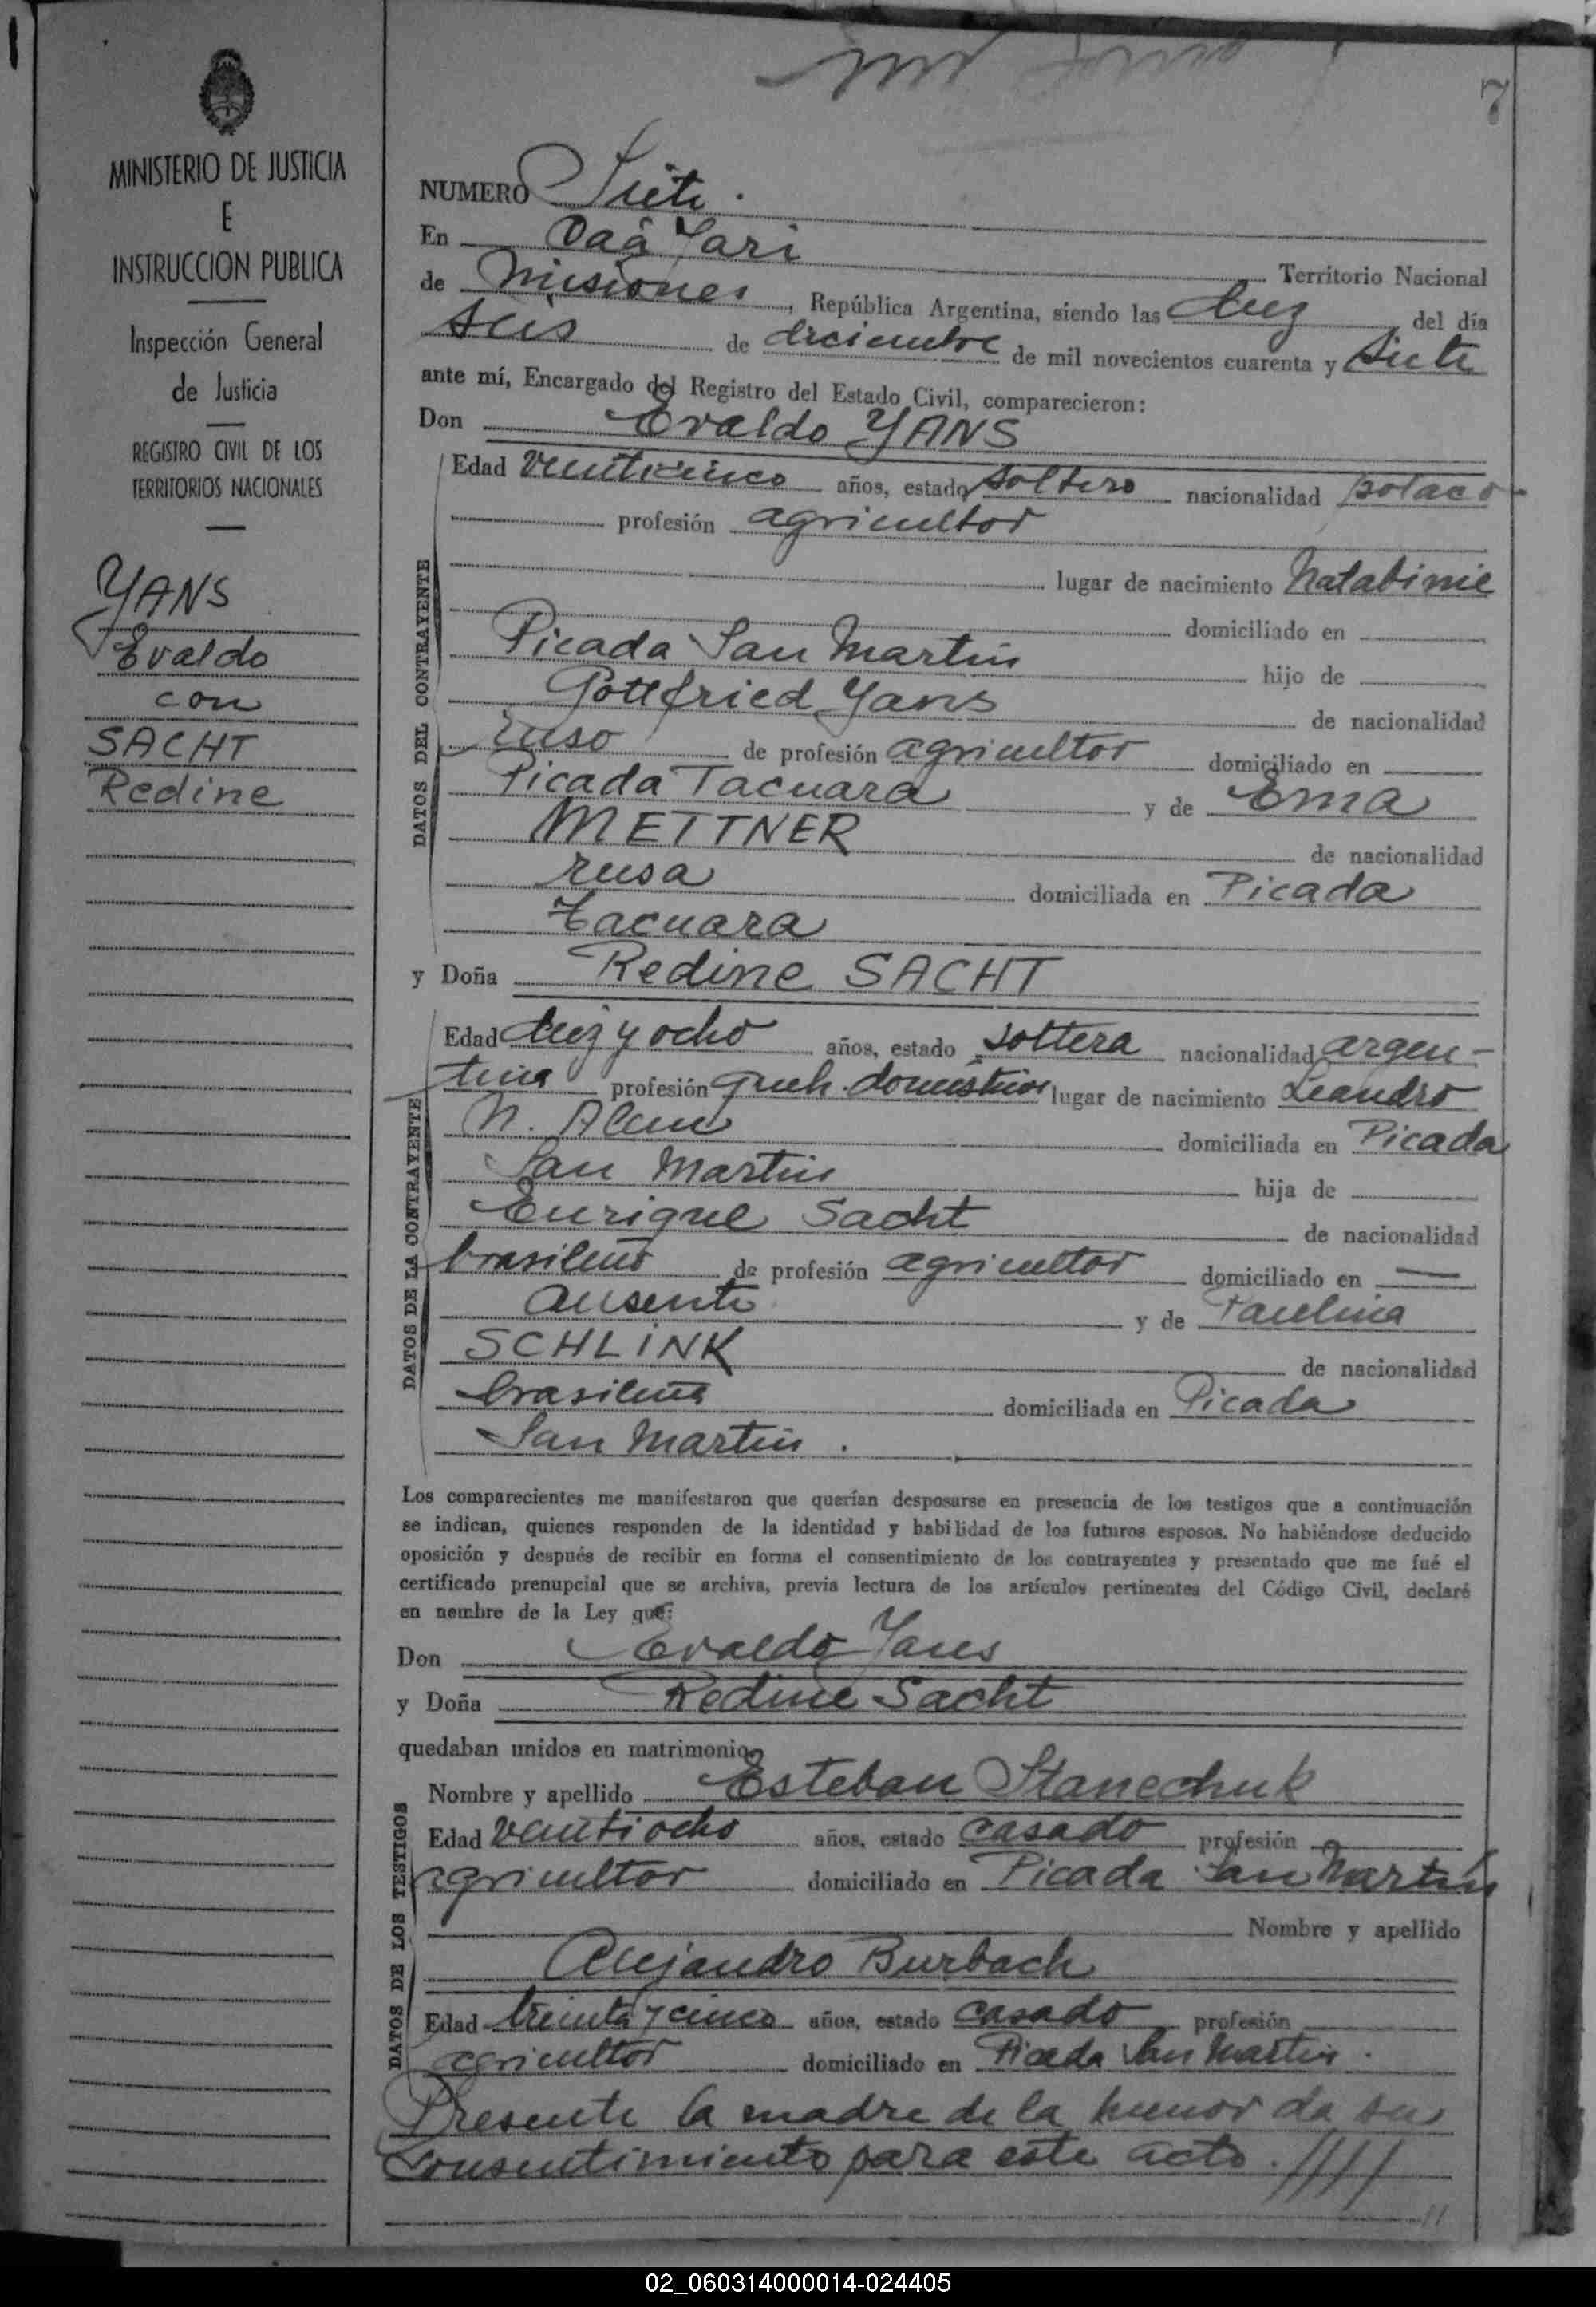 7
MINISTERIO DE JUSTICIA
E
INSTRUCCION PUBLICA
Inspección General
de Justicia
REGISTRO CIVIL DE LOS
TERRITORIOS NACIONALES
YANS
Evaldo
con
SACHT
Redine
NUMERO Siete.
En Oaá Yari Territorio Nacional
de Misiones, República Argentina, siendo las diez del día
seis de diciembre de mil novecientos cuarenta y siete
ante mí, Encargado del Registro del Estado Civil, comparecieron:
Don Evaldo YANS
DATOS DEL CONTRAYENTE
Edad veinticinco años, estado soltero nacionalidad polaco
profesión agricultor
lugar de nacimiento Natabinie
domiciliado en
Picada San Martin hijo de
Gottfried Yans de nacionalidad
ruso de profesión agricultor domiciliado en
Picada Tacuara y de Ema
METTNER de nacionalidad
rusa domiciliada en Picada
Tacuara
y Doña Redine SACHT
DATOS DE LA CONTRAYENTE
Edad diez y ocho años, estado soltera nacionalidad argen-
tina profesión queh. domésticos lugar de nacimiento Leandro
N. Alem domiciliada en Picada
San Martin hija de
Enrique Sacht de nacionalidad
brasileño de profesión agricultor domiciliado en
ausente y de Paulina
SCHLINK de nacionalidad
brasileña domiciliada en Picada
San Martin.
Los comparecientes me manifestaron que querían desposarse en presencia de los testigos que a continuación
se indican, quienes responden de la identidad y habilidad de los futuros esposos. No habiéndose deducido
oposición y después de recibir en forma el consentimiento de los contrayentes y presentado que me fué el
certificado prenupcial que se archiva, previa lectura de los artículos pertinentes del Código Civil, declaré
en nombre de la Ley que:
Don Evaldo Yans
y Doña Redine Sacht
quedaban unidos en matrimonio
DATOS DE LOS TESTIGOS
Nombre y apellido Esteban Stanechuk
Edad veintiocho años, estado casado profesión
agricultor domiciliado en Picada San Martin
Nombre y apellido
Alejandro Burbach
Edad treinta y cinco años, estado casado profesión
agricultor domiciliado en Picada San Martin.
Presente la madre de la menor da su
consentimiento para este acto. ////
02_060314000014-024405